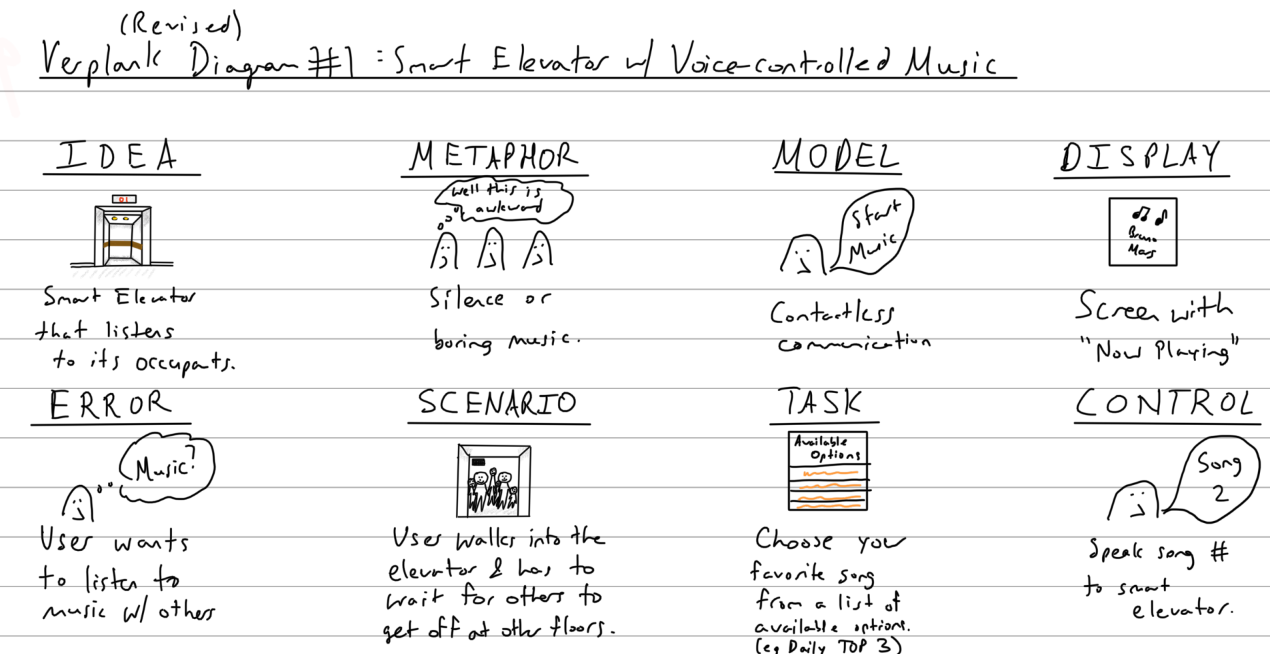 (Revised)
Verplank Diagram #1 : Smart Elevator w/ Voice-controlled Music
IDEA
01
Smart Elevator
that listens
to its occupants.
METAPHOR
Well this is
awkward
Silence or
boring music.
MODEL
Start
Music
Contactless
communication
DISPLAY
Bruno
Mars
Screen with
"Now Playing"
ERROR
Music?
User wants
to listen to
music w/ others
SCENARIO
User walks into the
elevator & has to
wait for others to
get off at other floors.
TASK
Available
Options
Choose your
favorite song
from a list of
available options.
(eg Daily TOP 3)
CONTROL
Song
2
Speak song #
to smart
elevator.